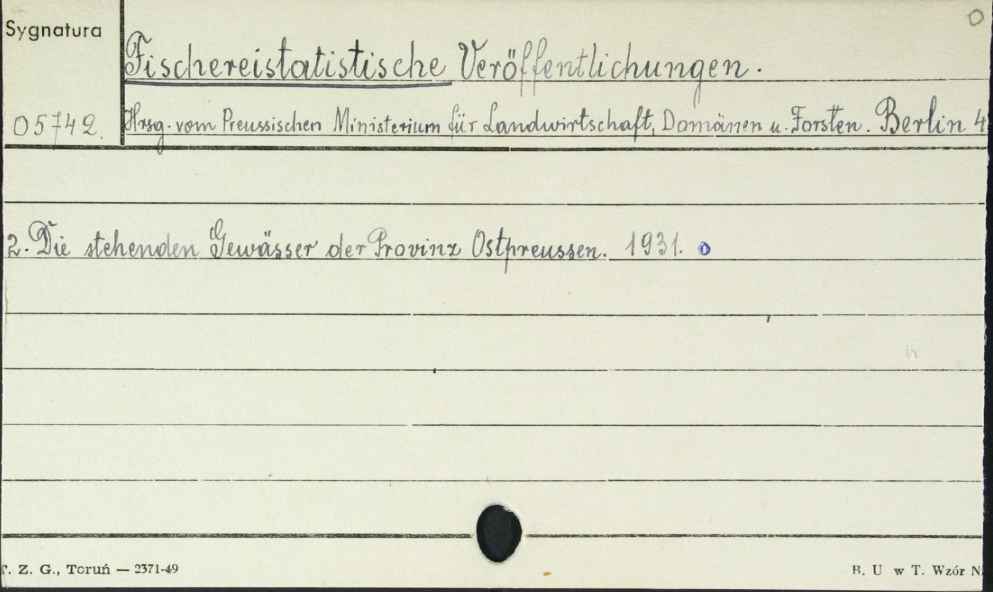 Sygnatura
Fischereistatistische Veröffentlichungen.
05742. Hrsg. vom Preussischen Ministerium für Landwirtschaft, Domänen u. Forsten. Berlin 4
2. Die stehenden Gewässer der Provinz Ostpreussen. 1931.
T. Z. G., Toruń — 2371-49
B. U w T. Wzór N